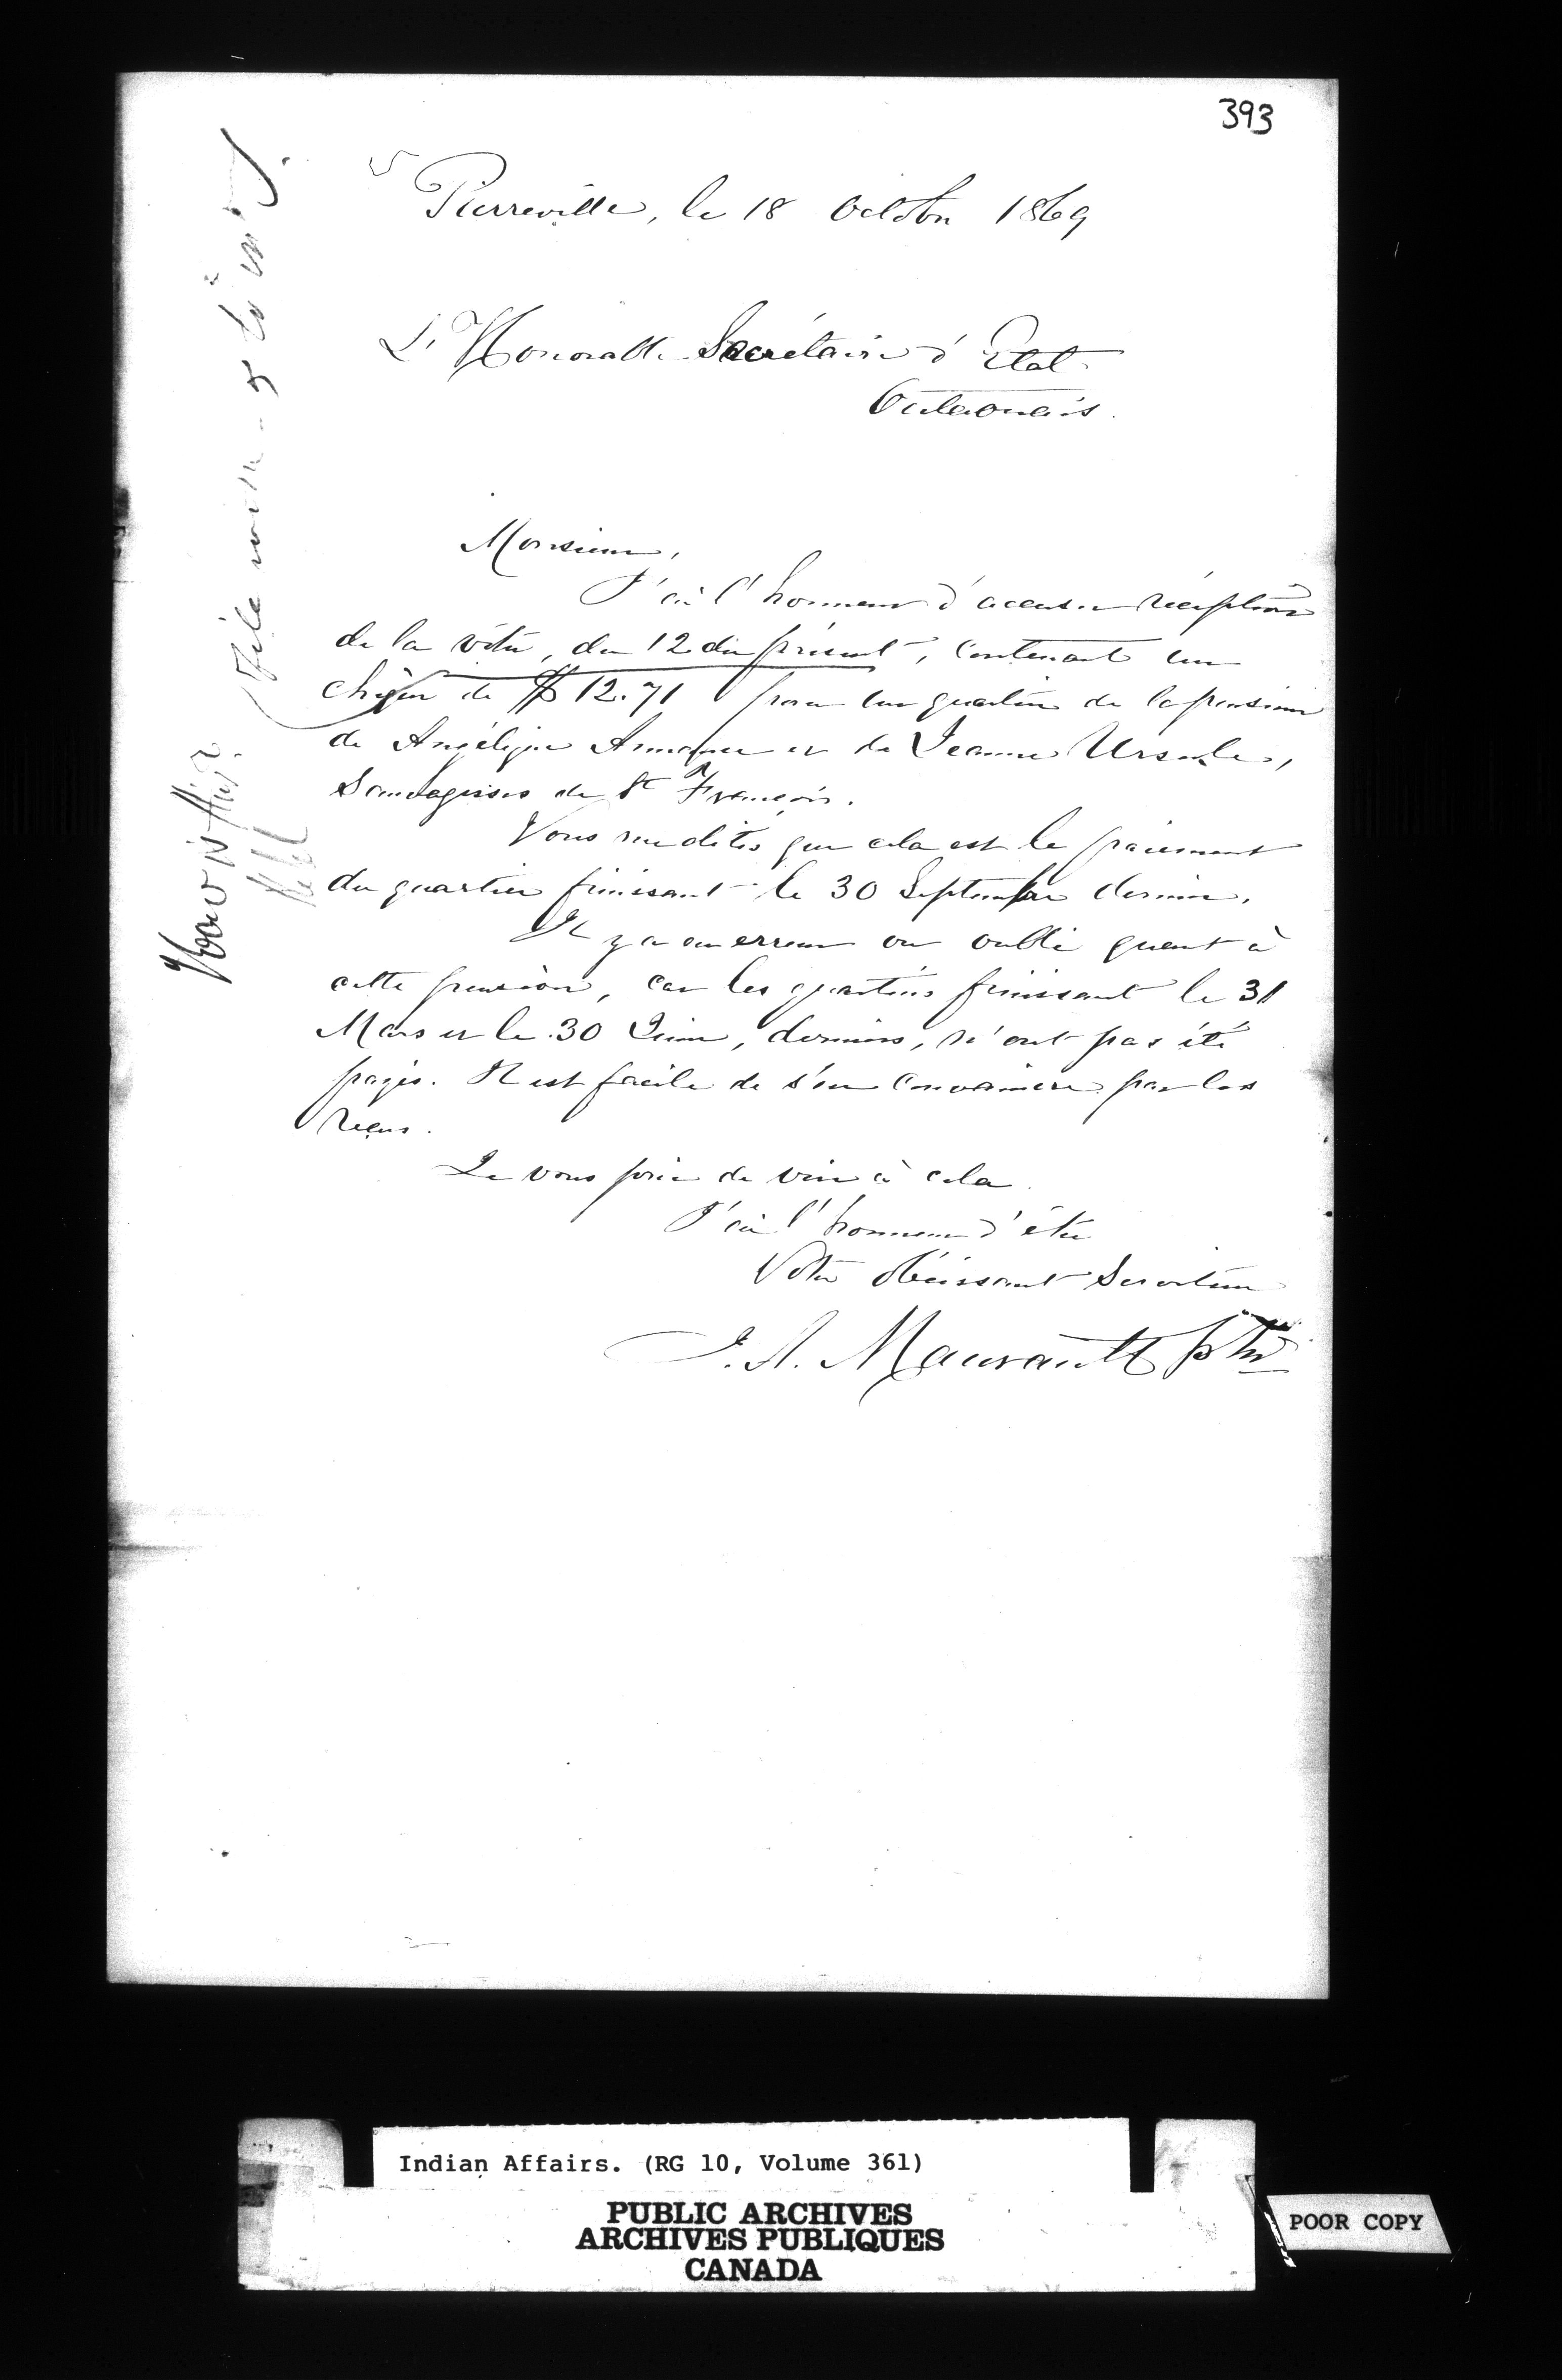 393
Pierreville, le 18 Octobre 1869
L'Honorable Secrétaire d'Etat
Outaouais.
Monsieur,
J'ai l'honneur d'accuser réception
de la vôtre, du 12 du présent, contenant un
chèque de $12.71 pour un quartier de la pension
de Angélique Annance et de Jeanne Ursule,
Sauvagesses de St François.
Vous me dites que cela est le paiement
du quartier finissant le 30 Septembre dernier.
Il y a eu erreur ou oubli quant à
cette pension, car les quartiers finissant le 31
Mars et le 30 Juin, derniers, n'ont pas été
payés. Il est facile de s'en convaincre par les
reçus.
Je vous prie de voir à cela.
J'ai l'honneur d'être
Votre obéissant Serviteur
J. A. Maurault Ptre
File
Indian Affairs. (RG 10, Volume 361)
PUBLIC ARCHIVES
ARCHIVES PUBLIQUES
CANADA
POOR COPY